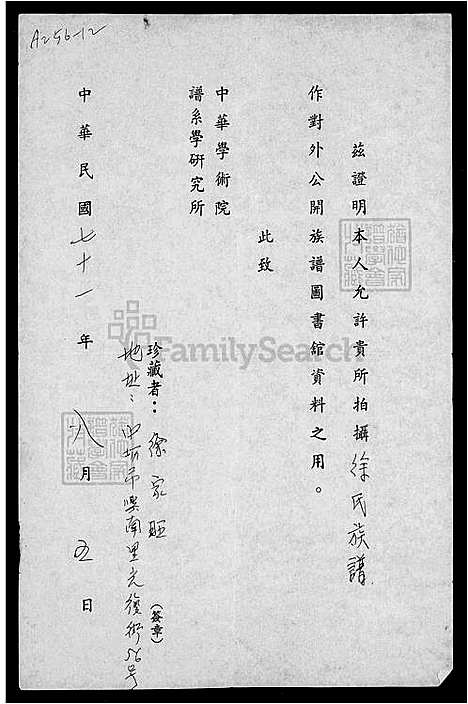 A256-12
茲證明本人允許貴所拍攝徐氏族譜
作對外公開族譜圖書館資料之用。
此致
中華學術院
譜系學研究所
珍藏者：徐家旺(簽章)
地址：中坜市興南里光復街56号
中華民國七十一年八月五日
FamilySearch